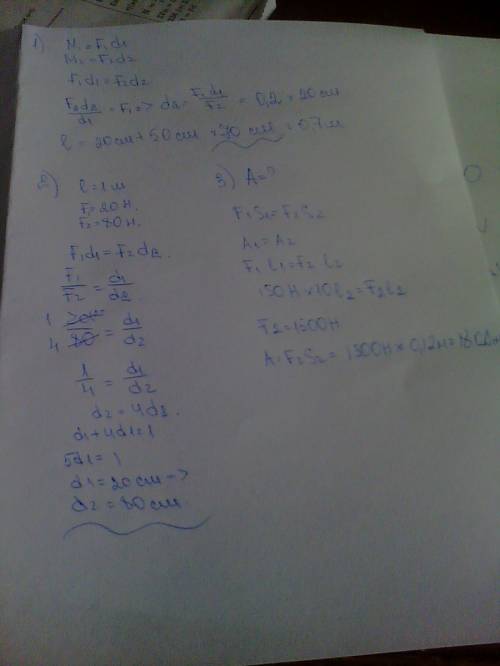 1) M₁ = F₁d₁
M₂ = F₂d₂
F₁d₁ = F₂d₂
F₂d₂/d₁ = F₁ => d₂ = F₁d₁/F₂ = 0,2 = 20 см
l = 20 см + 50 см = 70 см = 0,7 м
2) l = 1 м
F₁ = 20 Н.
F₂ = 80 Н.
F₁d₁ = F₂d₂.
F₁/F₂ = d₁/d₂
1 20/4 80 = d₁/d₂
1/4 = d₁/d₂
d₂ = 4d₁.
d₁ + 4d₁ = 1
5d₁ = 1
d₁ = 20 см =>
d₂ = 80 см
3) A = ?
F₁S₁ = F₂S₂
A₁ = A₂
F₁ l₁ = F₂ l₂
150 Н × 10 l₂ = F₂l₂
F₂ = 1500 Н
A = F₂S₂ = 1500 Н × 0,12 м =